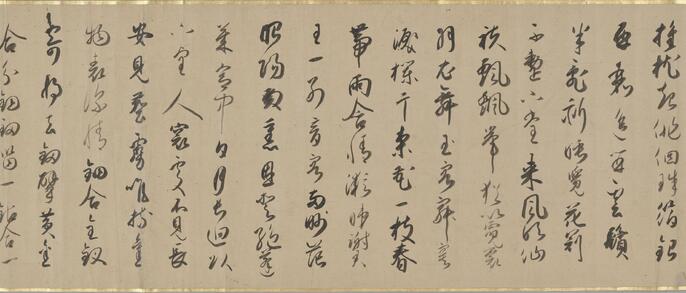 推枕起徘徊珠箔銀
屏迤邐開雲鬢
半偏新睡覺花冠
不整下堂來風吹仙
袂飄飄舉猶似霓裳
羽衣舞玉容寂寞
淚欄干梨花一枝春
帶雨含情凝睇謝君
王一別音容兩眇茫
昭陽殿裏恩愛絕蓬
萊宮中日月長迴頭
下望人寰處不見長
安見塵霧唯將舊
物表深情鈿合金釵
寄將去釵擘黃金
合分鈿留一股合一